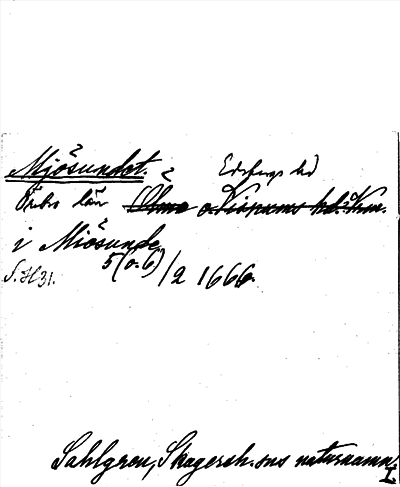 Mjösundet. Edsbergs hd
Örebro län Ölme o Visnums hd: Km.
i Miösunde
5(o. 6)/2 1666.
S. 1831.
Sahlgren, Skagersh. sns naturnamn.
I